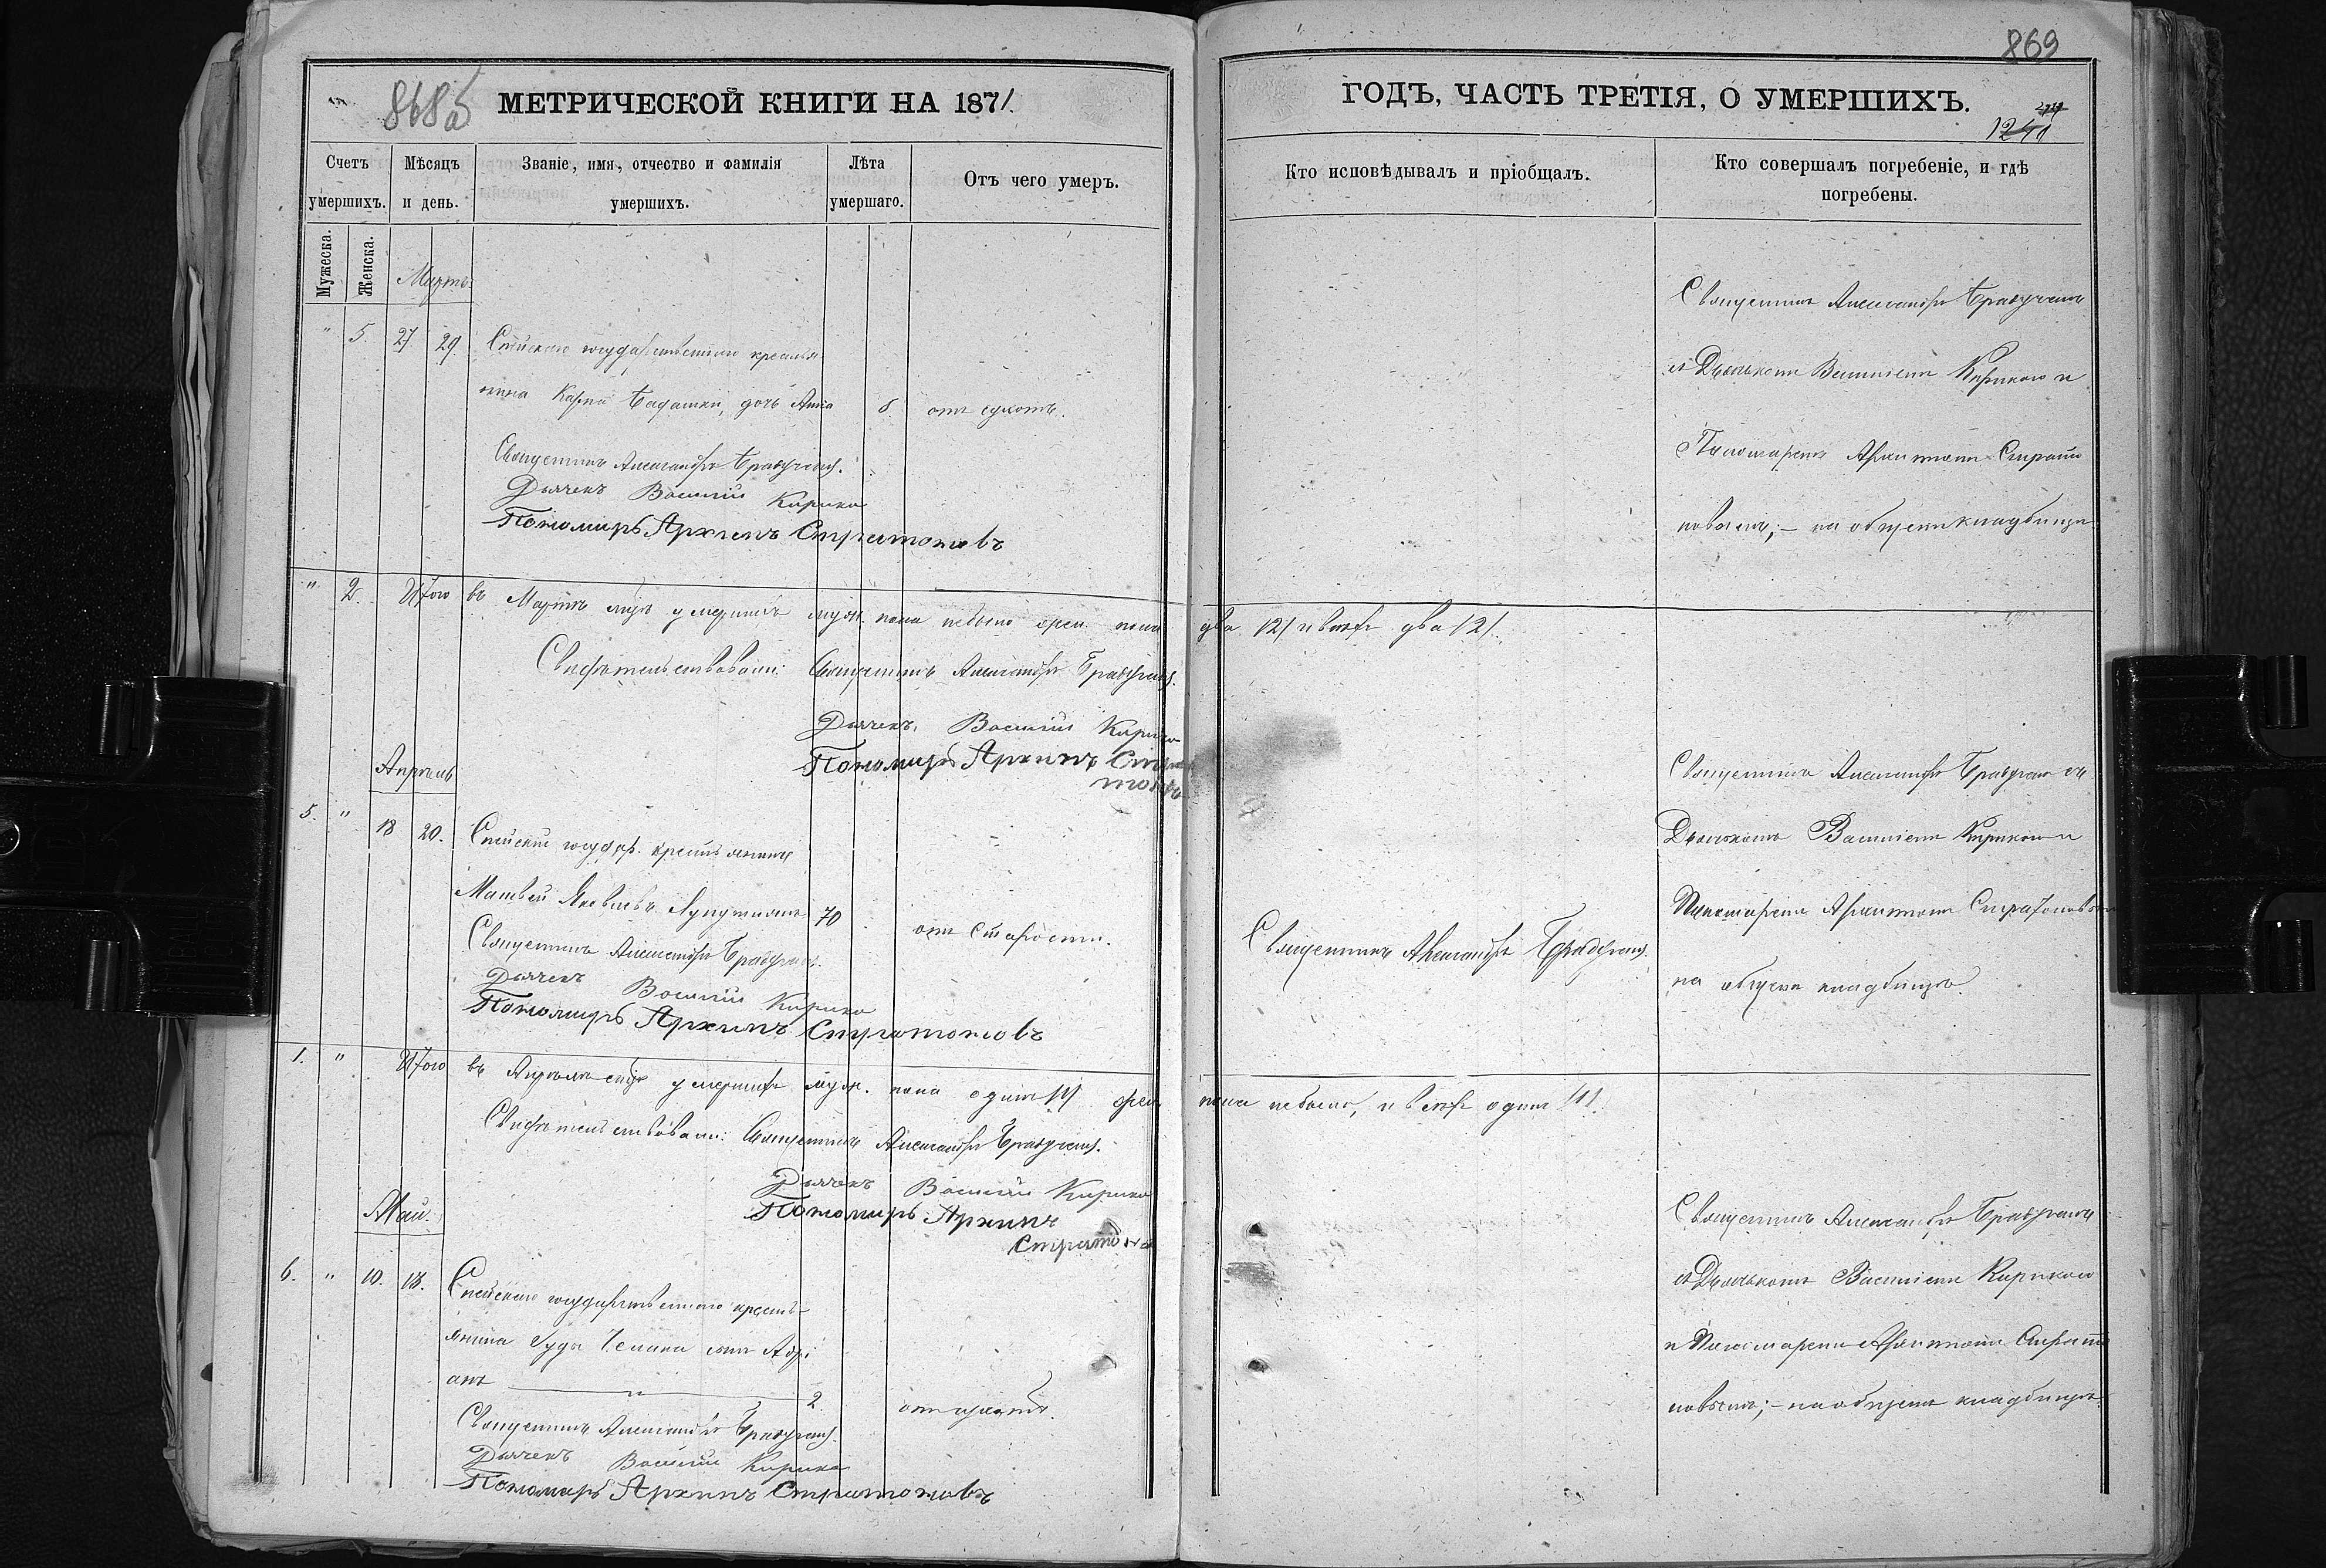 868б
а
МЕТРИЧЕСКОЙ КНИГИ НА 1871.
Счетъ умершихъ.
Мѣсяцъ и день.
Званіе, имя, отчество и фамилія умершихъ.
Лѣта умершаго.
Отъ чего умеръ.
Мужеска.
Женска.
Мартъ.
" 5. 27. 29. государственнаго крестья
нина Карпа дочь Анна 6. отъ
Священникъ Александръ
Дьячекъ Василій Кирика
Пономарь Архипъ Стратоновъ
" 2. Итого въ Мартѣ м-цѣ умершихъ муж. пола небыло жен. пола
Свидѣтельствовали: Священникъ Александръ
Дьячекъ Василій Кирика
Пономарь Архипъ Стра
тоновъ
Апрѣль
5. " 18 20. государ. крестьянинъ
Матвей Яковлевъ 70 отъ старости.
Священникъ Александръ
Дьячекъ Василій Кирика
Пономарь Архипъ Стратоновъ
1. " Итого въ Апрѣлѣ м-цѣ умершихъ муж. пола одинъ /1/ жен.
Свидѣтельствовали: Священникъ Александръ
Дьячекъ Василій Кирика
Пономарь Архипъ
Стратонов
Май.
6. " 10. государственнаго кресть-
янина сынъ Адрі
анъ 2. отъ
Священникъ Александръ
Дьячекъ Василій Кирика
Пономарь Архипъ Стратоновъ
869
ГОДЪ, ЧАСТЬ ТРЕТІЯ, О УМЕРШИХЪ.
Кто исповѣдывалъ и пріобщалъ.
Кто совершалъ погребеніе, и гдѣ
погребены.
Священникъ Александръ
съ Дьячкомъ Василіемъ Кирикою и
Пономаремъ Архипомъ Страто
новымъ; – на общемъ кладбищѣ
два /2/ и всѣхъ два /2/.
Священникъ Александръ съ
Дьячкомъ Василіемъ Кирикою и
Пономаремъ Архипомъ Стратоновымъ
на общемъ кладбищѣ.
Священникъ Александръ
пола небыло, и всѣхъ одинъ /1/.
Священникъ Александръ
съ Дьячкомъ Василіемъ Кирикою
и Пономаремъ Архипомъ Страто
новымъ; – на общемъ кладбищѣ.